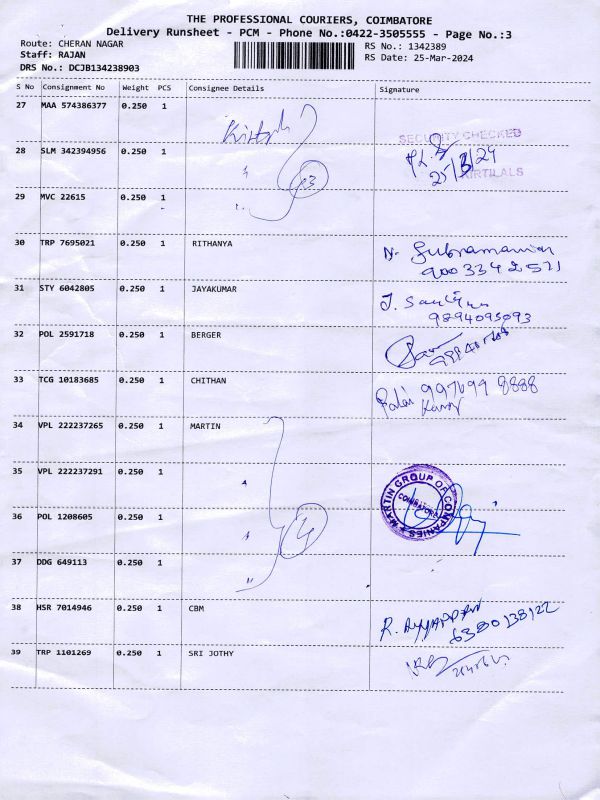 THE PROFESSIONAL COURIERS, COIMBATORE
Delivery Runsheet - PCM - Phone No.:0422-3505555 - Page No.:3
Route: CHERAN NAGAR RS No.: 1342389
Staff: RAJAN RS Date: 25-Mar-2024
DRS No.: DCJB134238903
S No Consignment No Weight PCS Consignee Details Signature
27 MAA 574386377 0.250 1
SECURITY CHECKED
28 SLM 342394956 0.250 1
25/3/24
KIRTILALS
29 MVC 22615 0.250 1
30 TRP 7695021 0.250 1 RITHANYA N. Subramanian
900 334 2571
31 STY 6042805 0.250 1 JAYAKUMAR
9894095093
32 POL 2591718 0.250 1 BERGER
33 TCG 10183685 0.250 1 CHITHAN 997699 8888
34 VPL 222237265 0.250 1 MARTIN
35 VPL 222237291 0.250 1
MARTIN GROUP OF COMPANIES
COIMBATORE
36 POL 1208605 0.250 1
37 DDG 649113 0.250 1
38 HSR 7014946 0.250 1 CBM R. AYYAPPAN
6380138122
39 TRP 1101269 0.250 1 SRI JOTHY